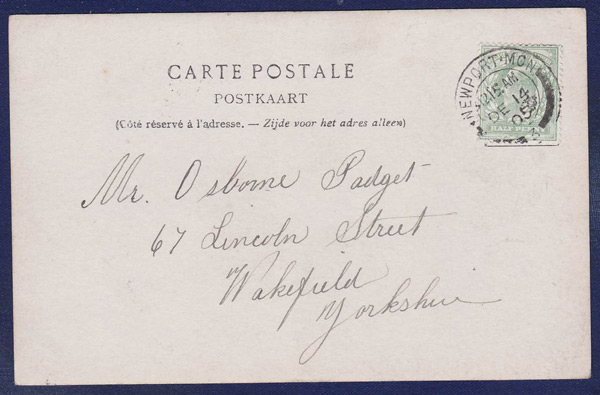 CARTE POSTALE
POSTKAART
(Côté réservé à l'adresse. — Zijde voor het adres alleen)
NEWPORT·MON
12 15 AM
DE 14
05
HALF PEN
Mr. Osborne Padget
67 Lincoln Street
Wakefield
Yorkshire